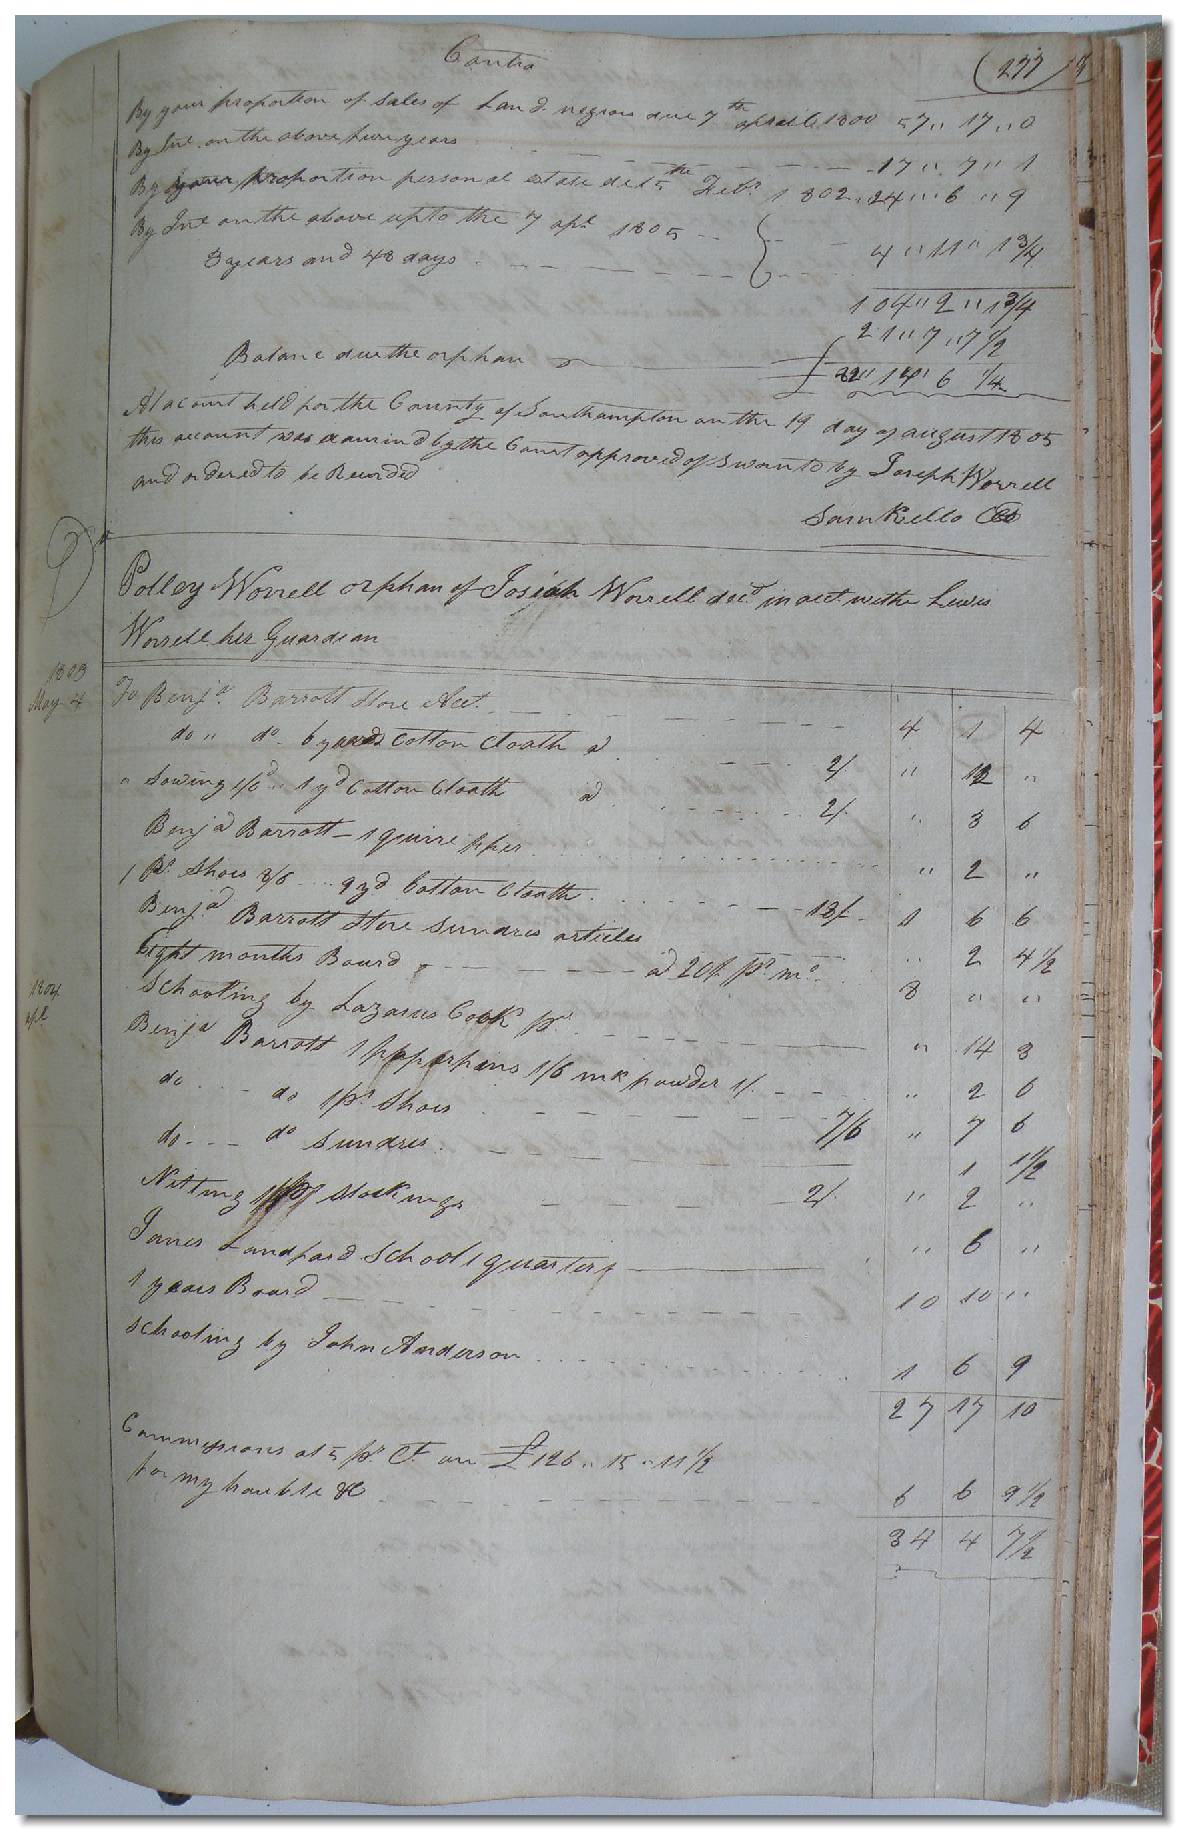 Contra (277
By your proportion of Sales of Land negroes due 7th april 1800 57 " 17 " 0
By Int. on the above five years - - - - 17 " 7 " 1
By your proportion personal estate del 5 the Feby 1802 " 24 " 6 " 9
By Int on the above up to the 7 apl 1805 - -
3 years and 48 days - - - - 4 " 11 " 1 3/4
104 " 2 " 1 3/4
21 " 7 " 7 1/2
Balance due the orphan £ 82 " 14 " 6 1/4
At a Court held for the County of Southampton on the 19 day of august 1805
this account was examind by the Court approved of Sworn to by Joseph Worrell
and ordered to be Recorded
Sam Kello CC
Polley Worrell orphan of Josiah Worrell decd in acct withe Lewis
Worrell her Guardian
1803
May 4 To Benja Barrott Store Acct. - - - - 4 1 4
do " do - 6 yards Cotton Cloath a - - - 2/ " 12 "
" Sowing 1/6 " 1 yd Cotton Cloath a - - - 2/. " 3 6
Benja Barrott - 1 quire pper - - - " 2 "
1 Pr. Shoes 8/6 - - - 9 yd Cotton Cloath - - - 18/- 1 6 6
Benja Barrott Store Sundres articles " 2 4 1/2
Eight months Board - - - - a 20/ pr mo. 8 " "
Schooling by Lazarus Cook pr - - - " 14 3
1804
apl Benja Barrott 1 ppr pins 1/6 powder 1/. - - - " 2 6
do - - - do 1 pr Shoes - - - 7/6 " 7 6
do - - - do Sundres - - - 1 1 1/2
Nitting 1 pr Stockings - - - 2/. " 2 "
Janes Landford School 1 quarter " 6 "
1 years Board - - - - 10 10 "
Schooling by John Anderson - - - - 1 6 9
27 17 10
Commissions at 5 pr Ct. on £ 126 " 15 " 11 1/2
for my trouble &c - - - - 6 6 9 1/2
34 4 7 1/2